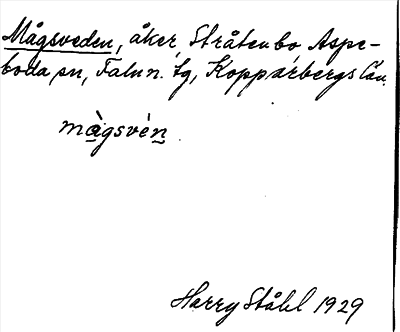 Mågsveden, åker, Stråtenbo, Aspe-
boda sn, Falu n. tg, Kopparbergs län.
màgsvèn
Harry Ståhl 1929